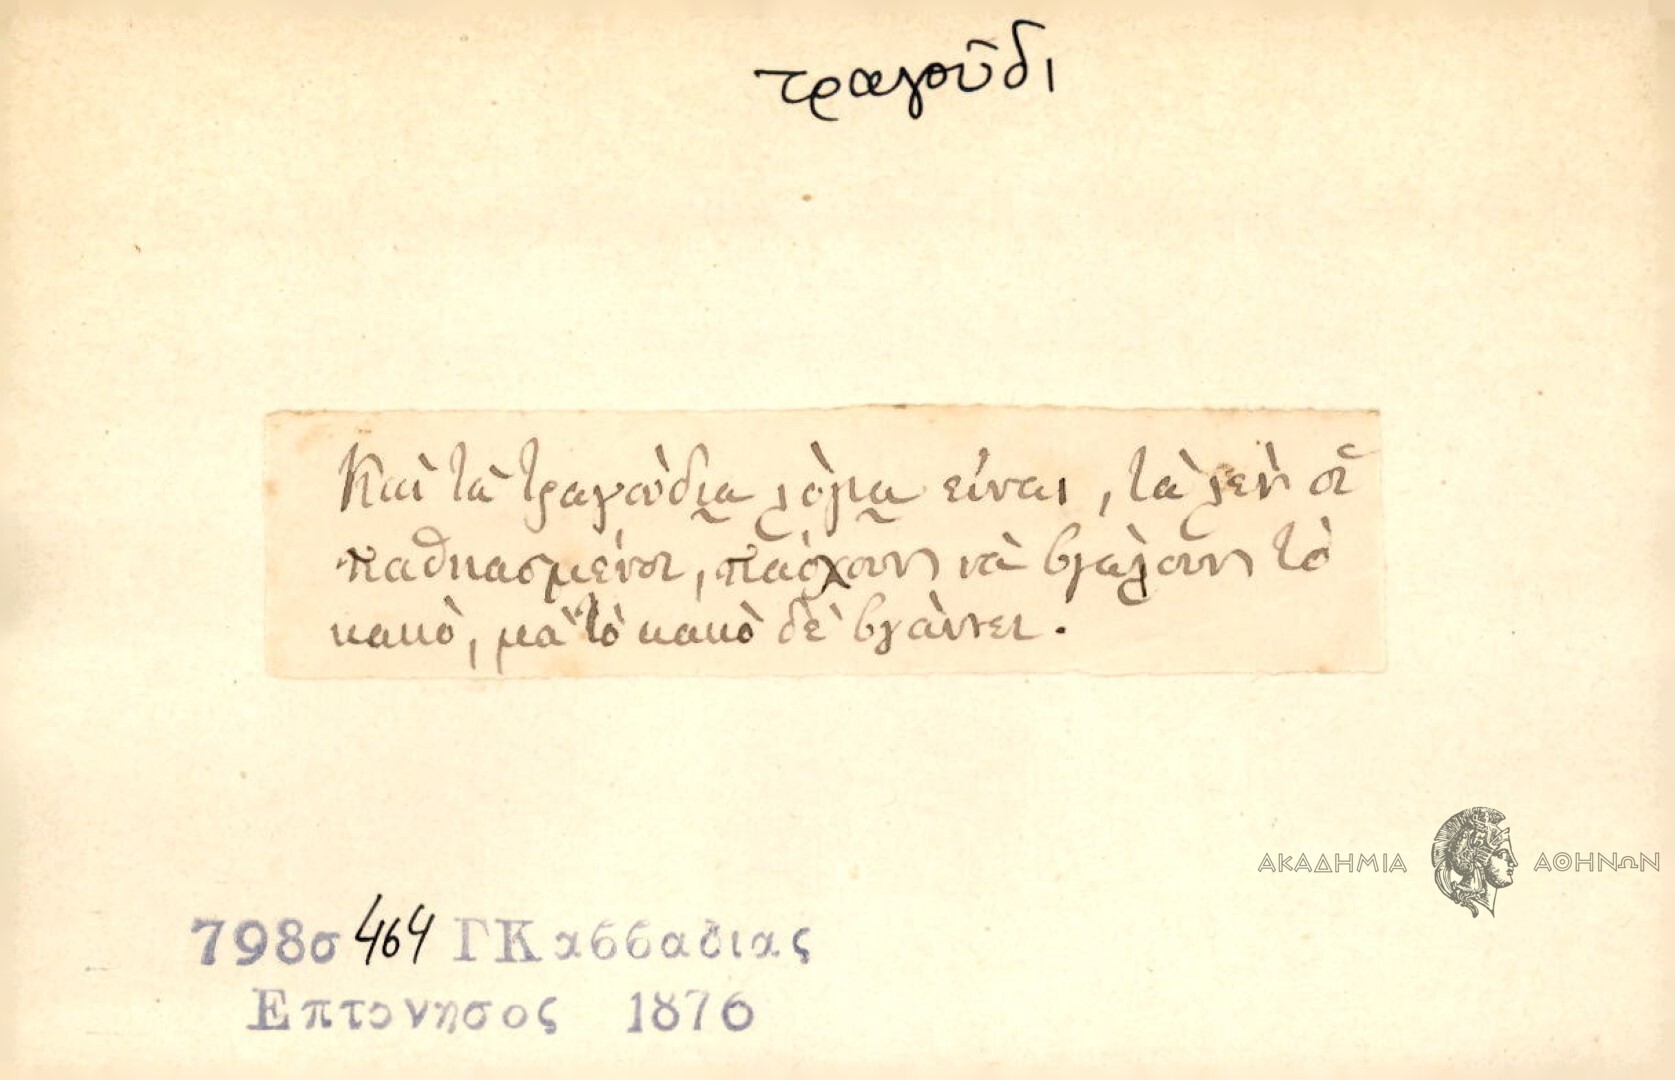 τραγοῦδι
Καὶ τὰ τραγούδια λόγια εἶναι, τὰ λὲν οἱ
παθιασμένοι, πάσχουν νὰ βγάλουν τὸ
κακὸ, μὰ τὸ κακὸ δὲ βγαίνει.
ΑΚΑΔΗΜΙΑ ΑΘΗΝΩΝ
798σ 464 ΓΚαββαδιας
Επτονησος 1876